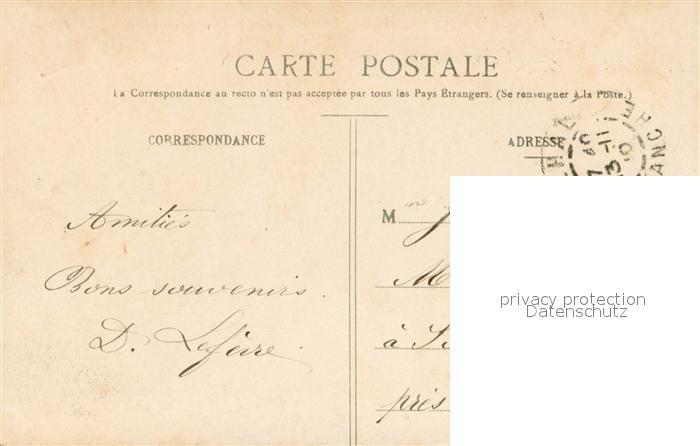 CARTE POSTALE
La Correspondance au recto n'est pas acceptée par tous les Pays Étrangers. (Se renseigner à la Poste.)
CORRESPONDANCE
ADRESSE
Amitiés
Bons souvenirs.
D. Lefèvre
M
à
près
privacy protection
Datenschutz